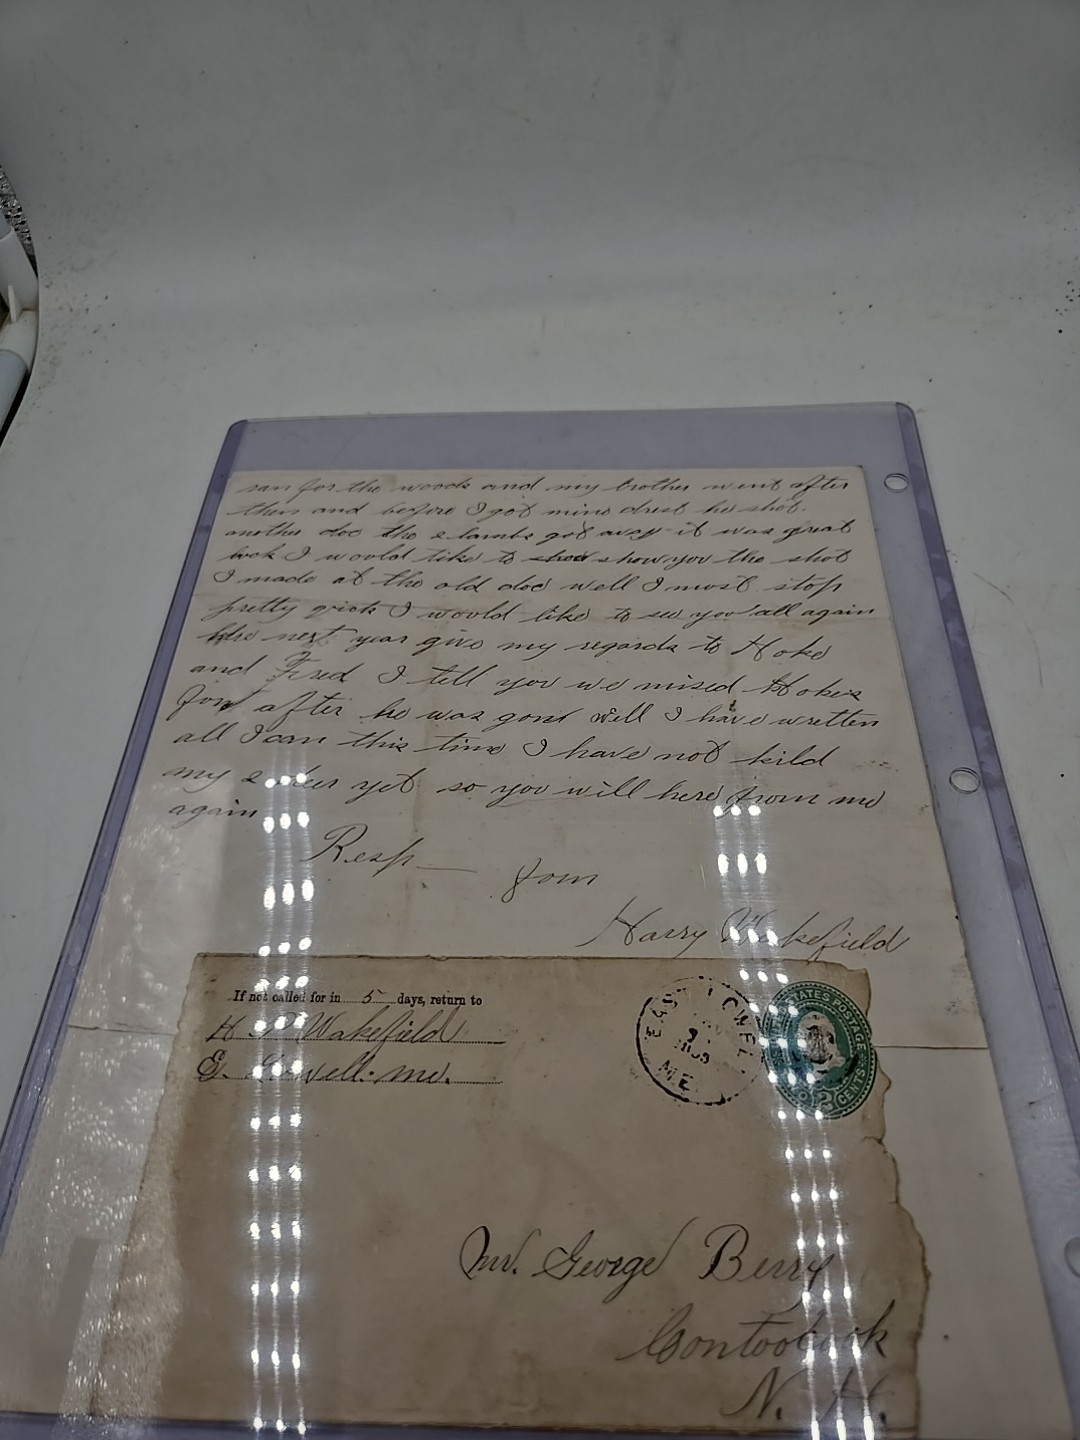 ran for the woods and my brother went after
them and before I got mine drest he shot
another doe the 2 lambs got away it was great
luck I would like to show you the shot
I made at the old doe well I most stop
pretty quick I would like to see you all again
next year give my regards to Hoke
and Fred I tell you we mised Hokes
after he was gone well I have written
all I can this time I have not kild
my 2 deer yet so you will here from me
again
Resp— from
Harry Wakefield
If not called for in 5 days, return to
H P Wakefield
E. Lowell. me.
EAST LOWELL
ME.
UNITED STATES POSTAGE
TWO CENTS
2
Mr. George Berry
Contoocook
N. H.